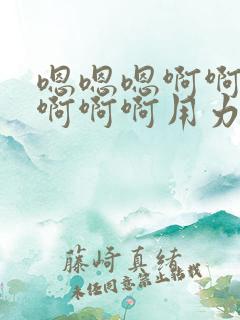 嗯嗯嗯啊啊
啊啊啊用力
藤崎真绪
未经同意禁止转载